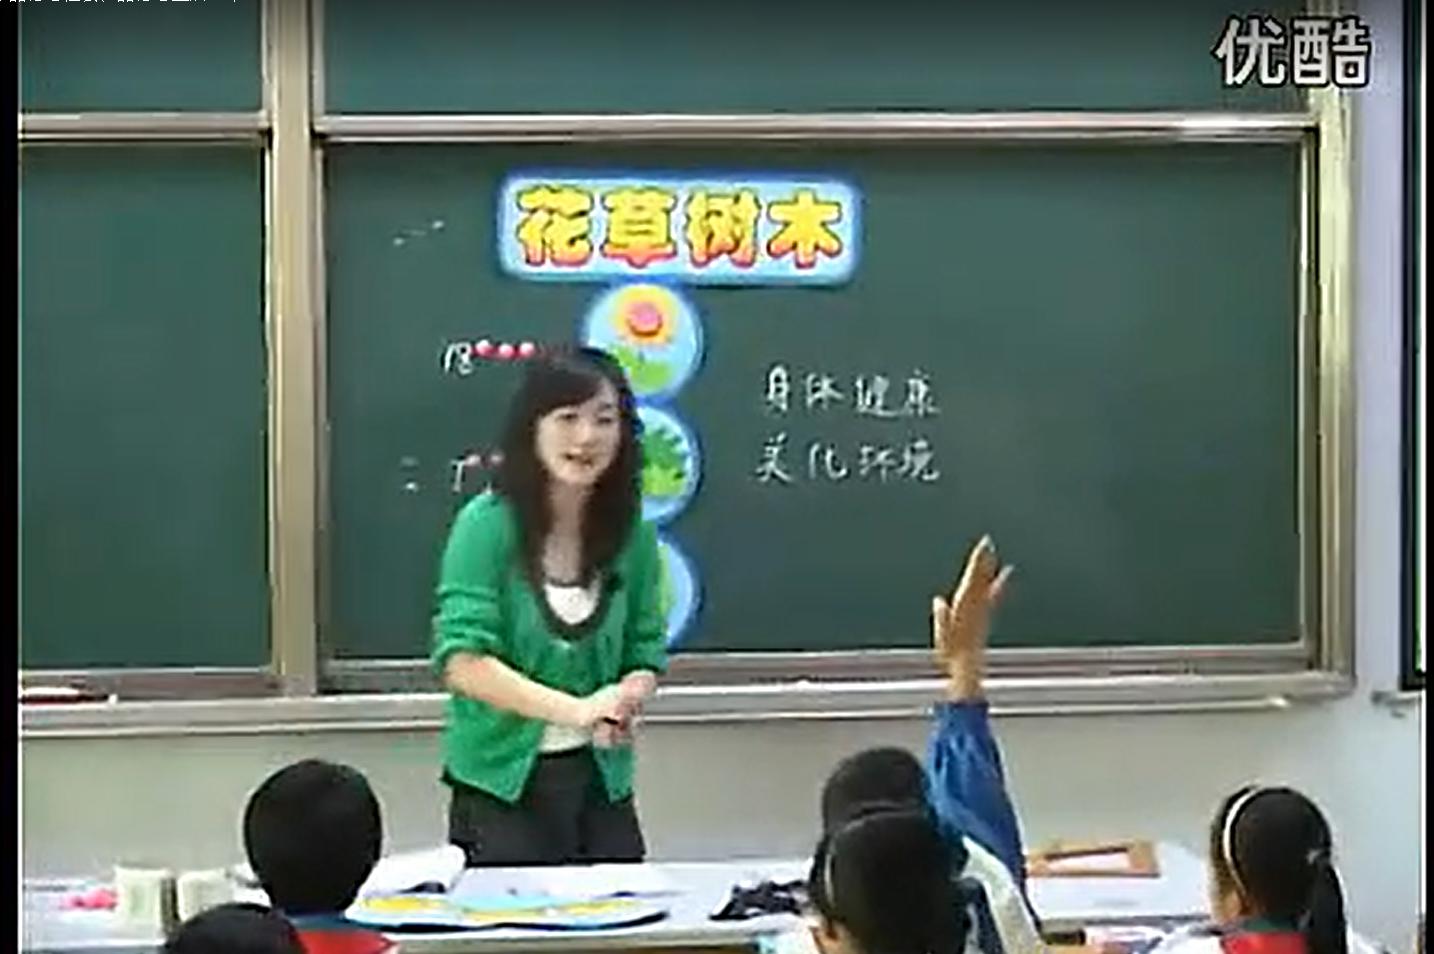 优酷
花草树木
身体健康
美化环境